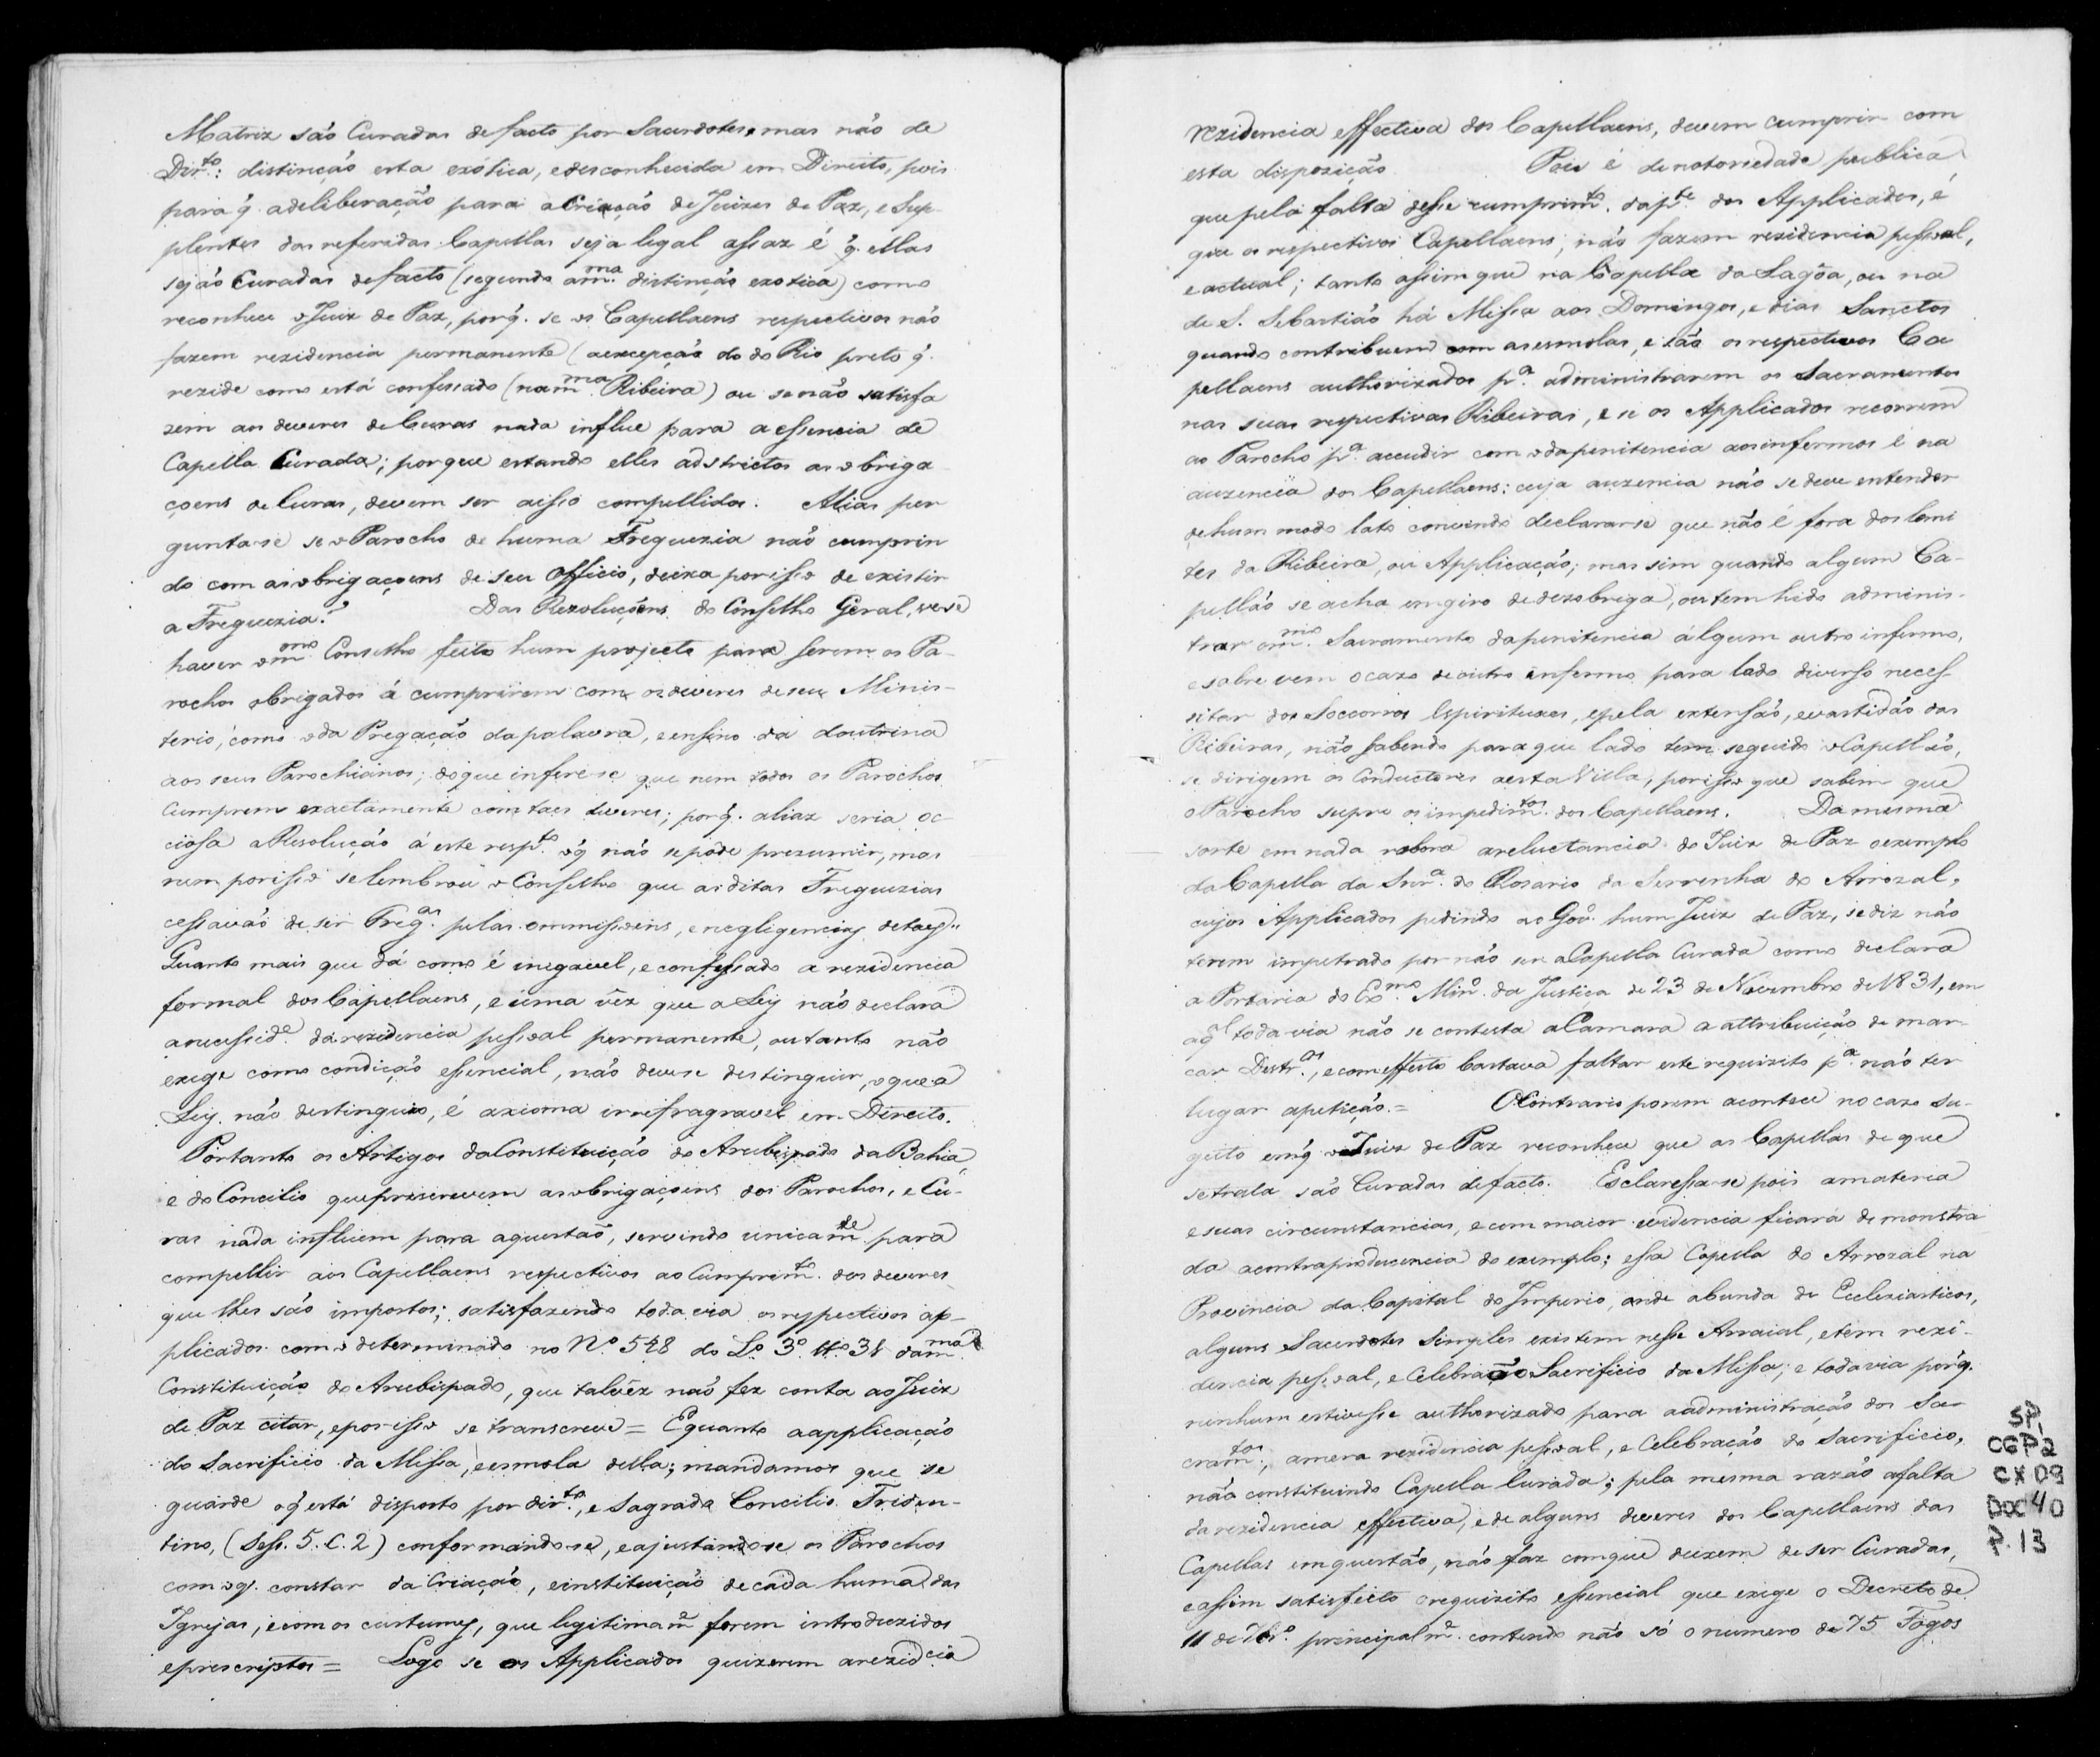 Matriz são Curadas de facto por Sacerdotes, mas não de
Dirto: distincção esta exótica, e desconhecida em Direito, pois
para q̃ a deliberação para a Criação de Juizes de Paz, e Sup-
plentes das referidas Capellas seja legal assaz é q̃ ellas
sejão Curadas de facto (segundo a mma distinção exotica) como
reconhece o Juiz de Paz, porq̃ se os Capellaens respectivos não
fazem rezidencia permanente (a excepção do do Rio preto q̃
rezide como está confessado (na mma Ribeira) ou se não satisfa
zem aos deveres de Curas nada influe para a essencia de
Capella Curada; porque estando elles adstrictos as obriga
çoens de Curas, devem ser a isso compellidos. Alias per
gunta-se se o Parocho de huma Freguezia não cumprin
do com as obrigaçoens de seu Officio, deixa por isso de existir
a Freguezia? Das Rezoluçoens do Conselho Geral, ve-se
haver o mmo Conselho feito hum projecto para serem os Pa-
rochos obrigados á cumprirem com os deveres de seu Minis-
terio, como o da Pregação da palavra, e ensino da doutrina
aos seus Parochianos; do que infere-se que nem todos os Parochos
Cumprem exactamente com taes deveres; porq̃ aliaz seria oc-
ciosa a Resolução á este respto o q̃ não se póde prezumir, mas
nem por isso se lembrou o Conselho que as ditas Freguezias
cessavão de ser Fregas pelas ommissoens, e negligencias de taes"
Quanto mais que dá como é inegavel, e confessado a rezidencia
formal dos Capellaens, e uma vêz que a Ley não declara
a necesside da rezidencia pessoal permanente, ou tanto não
exige como condição essencial, não deve-se destinguir, o que a
Ley não destinguio, é axioma irrefragravel em Direito.
Portanto os Artigos da Constituição do Arcebispado da Bahia,
e do Concilio que prescrevem as obrigaçoens dos Parochos, e Cu-
ras nada influem para a questão, servindo unicamte para
compellir aos Capellaens respectivos ao Cumprimto dos deveres
que lhes são impostos; satisfazendo toda via os respectivos ap-
plicados com o determinado no No 548 do Lo 3o tto 38 da mma
Constituição do Arcebispado, que talvêz não fez conta ao Juiz
de Paz citar, e por isso se transcreve = E quanto a applicação
do Sacrificio da Missa, e esmola della; mandamos que se
guarde o q̃ está disposto por dirto, e Sagrado Concilio Triden-
tino, (Sess. 5. C. 2) conformando-se, e ajustando-se os Parochos
com o q̃ constar da Criação, e instituição de cada huma das
Igrejas, e com os custumes, que legitimame forem introduzidos
e prescriptos = Logo se os Applicados quizerem a rezidcia
rezidencia effectiva dos Capellaens, devem cumprir com
esta dispozição Pois é de notoriedade publica
que pela falta desse cumprimto da pte dos Applicados, é
que os respectivos Capellaens, não fazem rezidencia pessoal,
e actual; tanto assim que na Capella da Lagôa, ou na
de S. Sebastião há Missa aos Domingos, e dias Sanctos
quando contribuem com as esmolas, e são os respectivos Ca
pellaens authorizados pa administrarem os Sacramentos
nas suas respectivas Ribeiras, e se os Applicados recorrem
ao Parocho pa accudir com o da penitencia aos infermos é na
auzencia dos Capellaens: cuja auzencia não se deve entender
de hum modo lato convindo declarar-se que não é fora dos lemi
tes da Ribeira, ou Applicação; mas sim quando algum Ca-
pellão se acha em giro de dezobriga, ou tem hido adminis-
trar o mmo Sacramento da penitencia á lgum outro infermo,
e sobre vem o cazo de outro enfermo para lado diverso neces-
sitar dos Soccorros Espirituaes, e pela extensão, e vastidão das
Ribeiras, não sabendo para que lado tem seguido o Capellão,
se dirigem os Conductores a esta Villa, por isso que sabem que
o Parocho supre os impedimtos dos Capellaens. Da mesma
sorte em nada robora a reluctancia do Juiz de Paz o exemplo
da Capella da Snra do Rosario da Serrinha do Arrozal,
cujos Applicados pedindo ao Govo hum Juiz de Paz, se diz não
terem impetrado por não ser a Capella Curada como declara
a Portaria do Exmo Mino da Justiça de 23 de Novembro de 1831, em
a ql toda via não se contesta a Camara a attribuição de mar-
car Distros, e com effeito bastava faltar este requizito pa não ter
lugar a petição. = O Contrario porem acontece no cazo Su-
geito em q̃ o Juiz de Paz reconhece que as Capellas de que
se trata são Curadas de facto. Esclaressa-se pois a materia
e suas circunstancias, e com maior evidencia ficará demonstra
da a contraproducencia do exemplo; essa Capella do Arrozal na
Provincia da Capital do Imperio, onde abunda de Eccleziasticos,
alguns Sacerdotes Simples existem nesse Arraial, e tem rezi-
dencia pessoal, e Celebrão o Sacrificio da Missa; e todavia porq̃
nenhum estivesse authorizado para a administração dos Sa-
cramtos, a mera rezidencia pessoal, e Celebração do Sacrificio,
não constituindo Capella Curada; pela mesma razão a falta
da rezidencia effectiva, e de alguns deveres dos Capellaens das
Capellas em questão, não faz com que deixem de ser Curadas,
e assim satisfeito o requizito essencial que exige o Decreto de
11 de 7bro principalme contendo não só o numero de 75 Fogos
SP,
CGP2
CX 09
DOC 40
P. 13